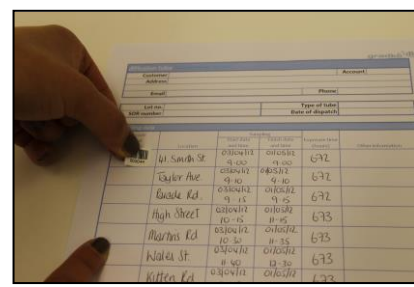 Diffusion tubes
Customer
Account
Address
Email
Phone
Lot no.
Type of tube
SOR number
Date of dispatch
Location
Start date and time
Finish date and time
Exposure time (hours)
41, Smith St 03/04/12 9-00 01/05/12 9-00 672
Taylor Ave 03/04/12 9-10 01/05/12 9-10 672
Parade Rd. 03/04/12 9-15 01/05/12 9-15 672
High Street 03/04/12 10-15 01/05/12 11-15 673
Martins Rd 03/04/12 10-30 01/05/12 11-35 673
Wales St. 03/04/12 11-40 01/05/12 12-30 673
Kitten Rd 03/04/12 01/05/12 673